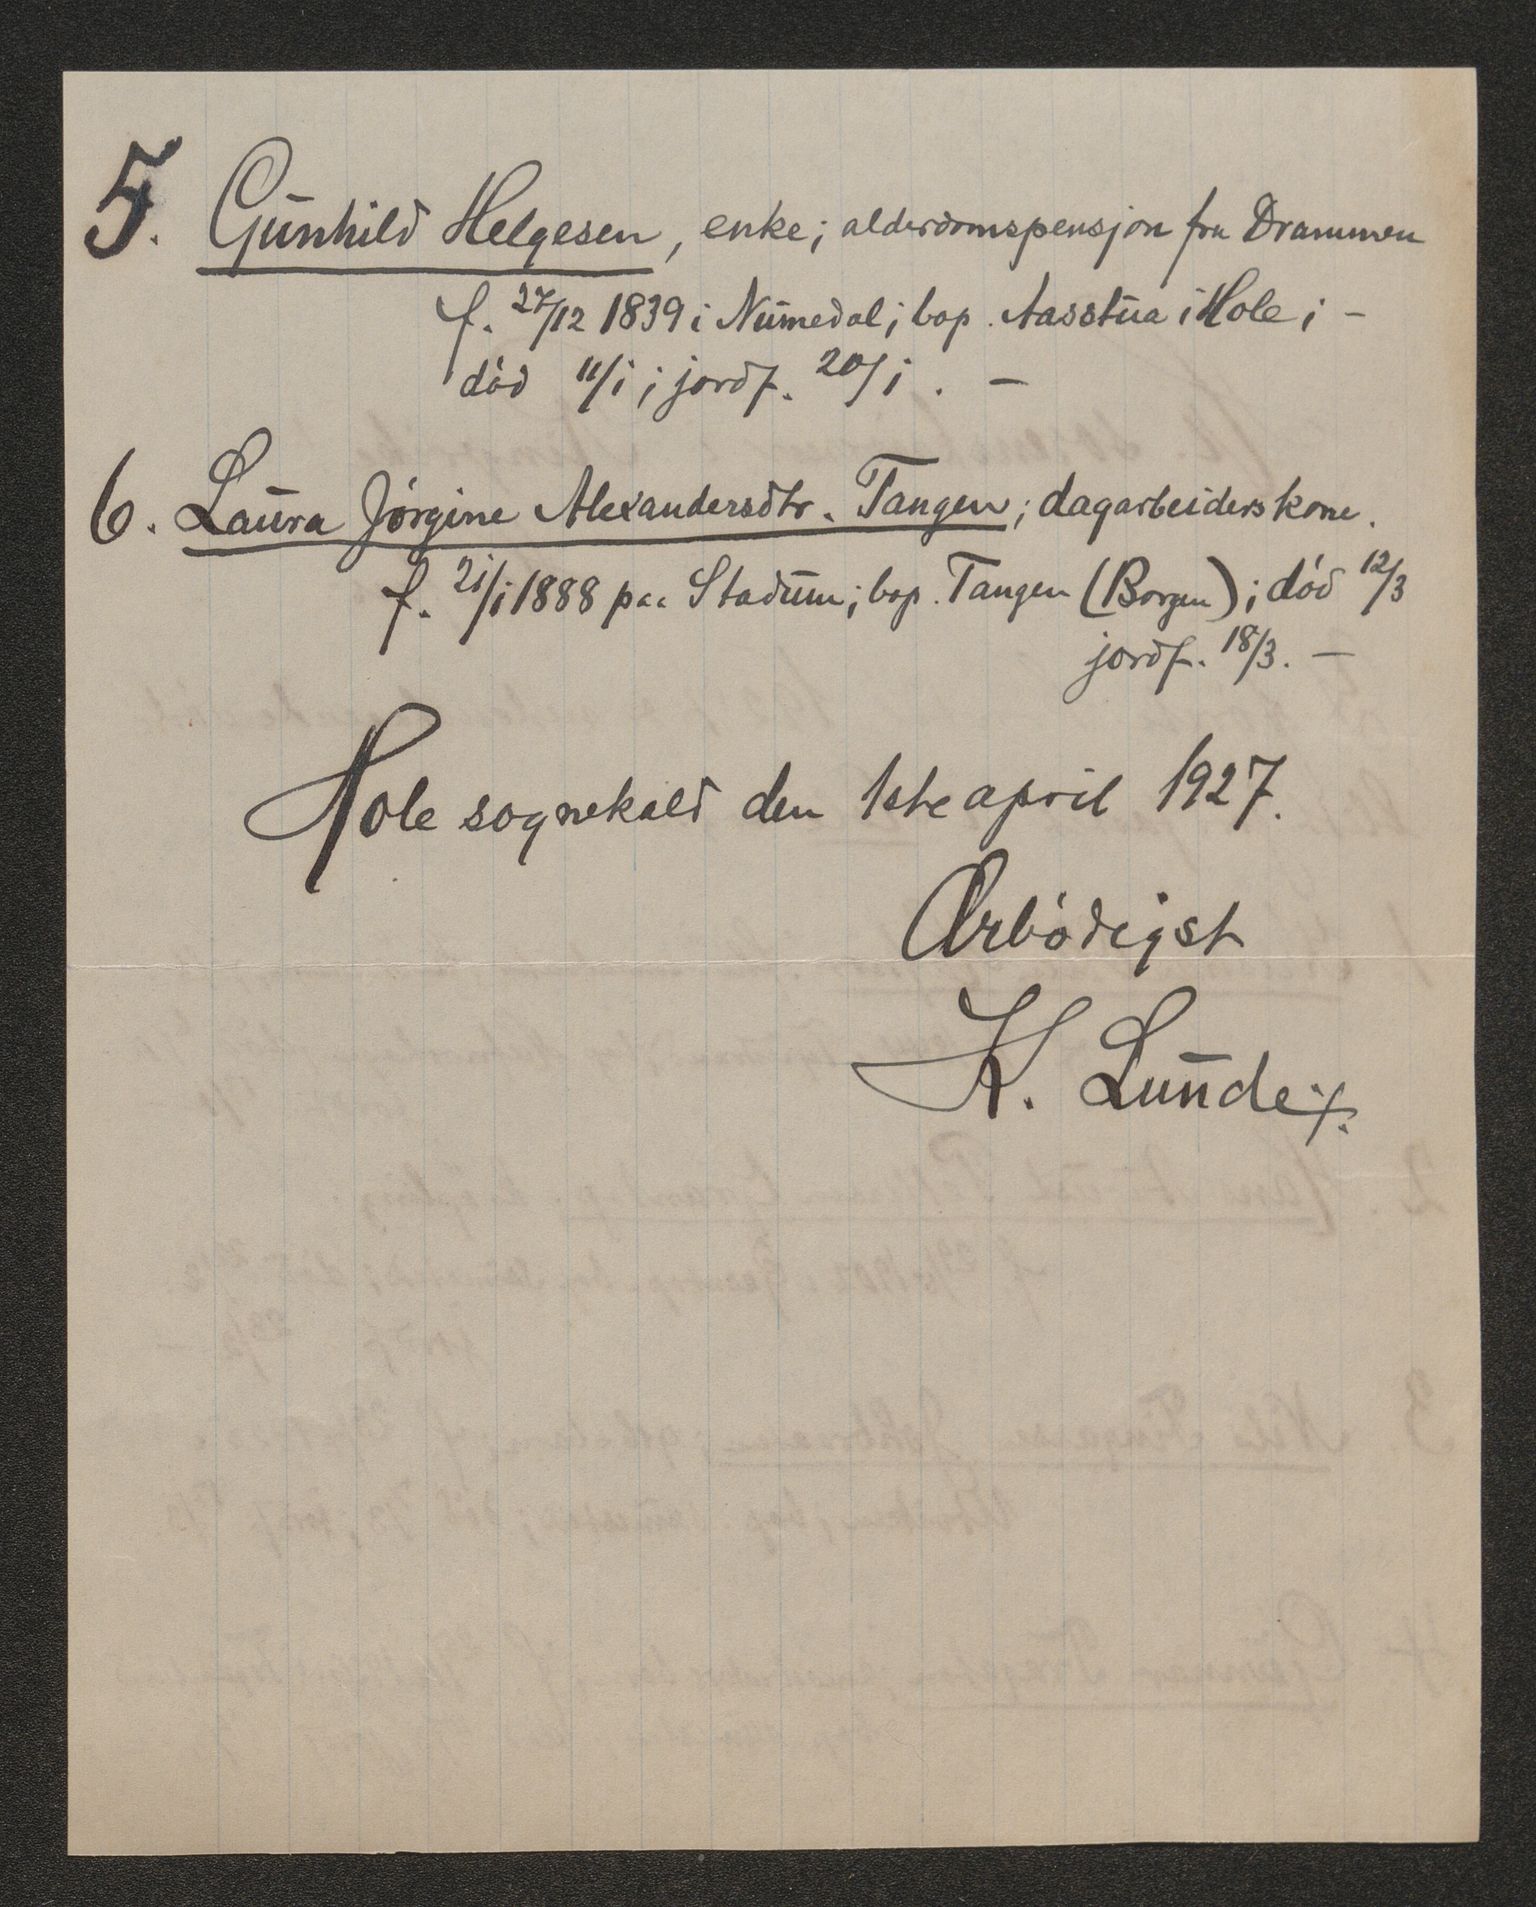 5. Gunhild Helgesen, enke; alderdomspensjon fra Drammen
f. 27/12 1839 i Numedal; bop. Aasstua i Hole; –
död 11/1; jordf. 20/1. –
6. Laura Jörgine Alexandersdtr. Tangen; dagarbeiderskone.
f. 21/1 1888 paa Stadum; bop. Tangen (Borgen); död 12/3
jordf. 18/3. –
Hole sognekald den 1ste april 1927.
Ærbödigst
K. Lunde